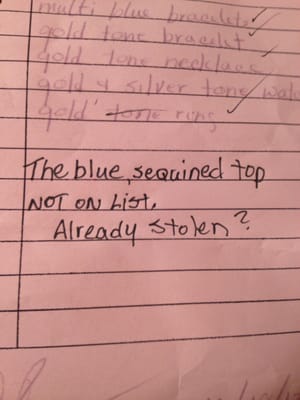 multi blue bracelets ✓
gold tone bracelet ✓
gold tone necklace ✓
gold & silver tone
gold tone ring ✓
The blue, sequined top
NOT ON LIST.
Already stolen?